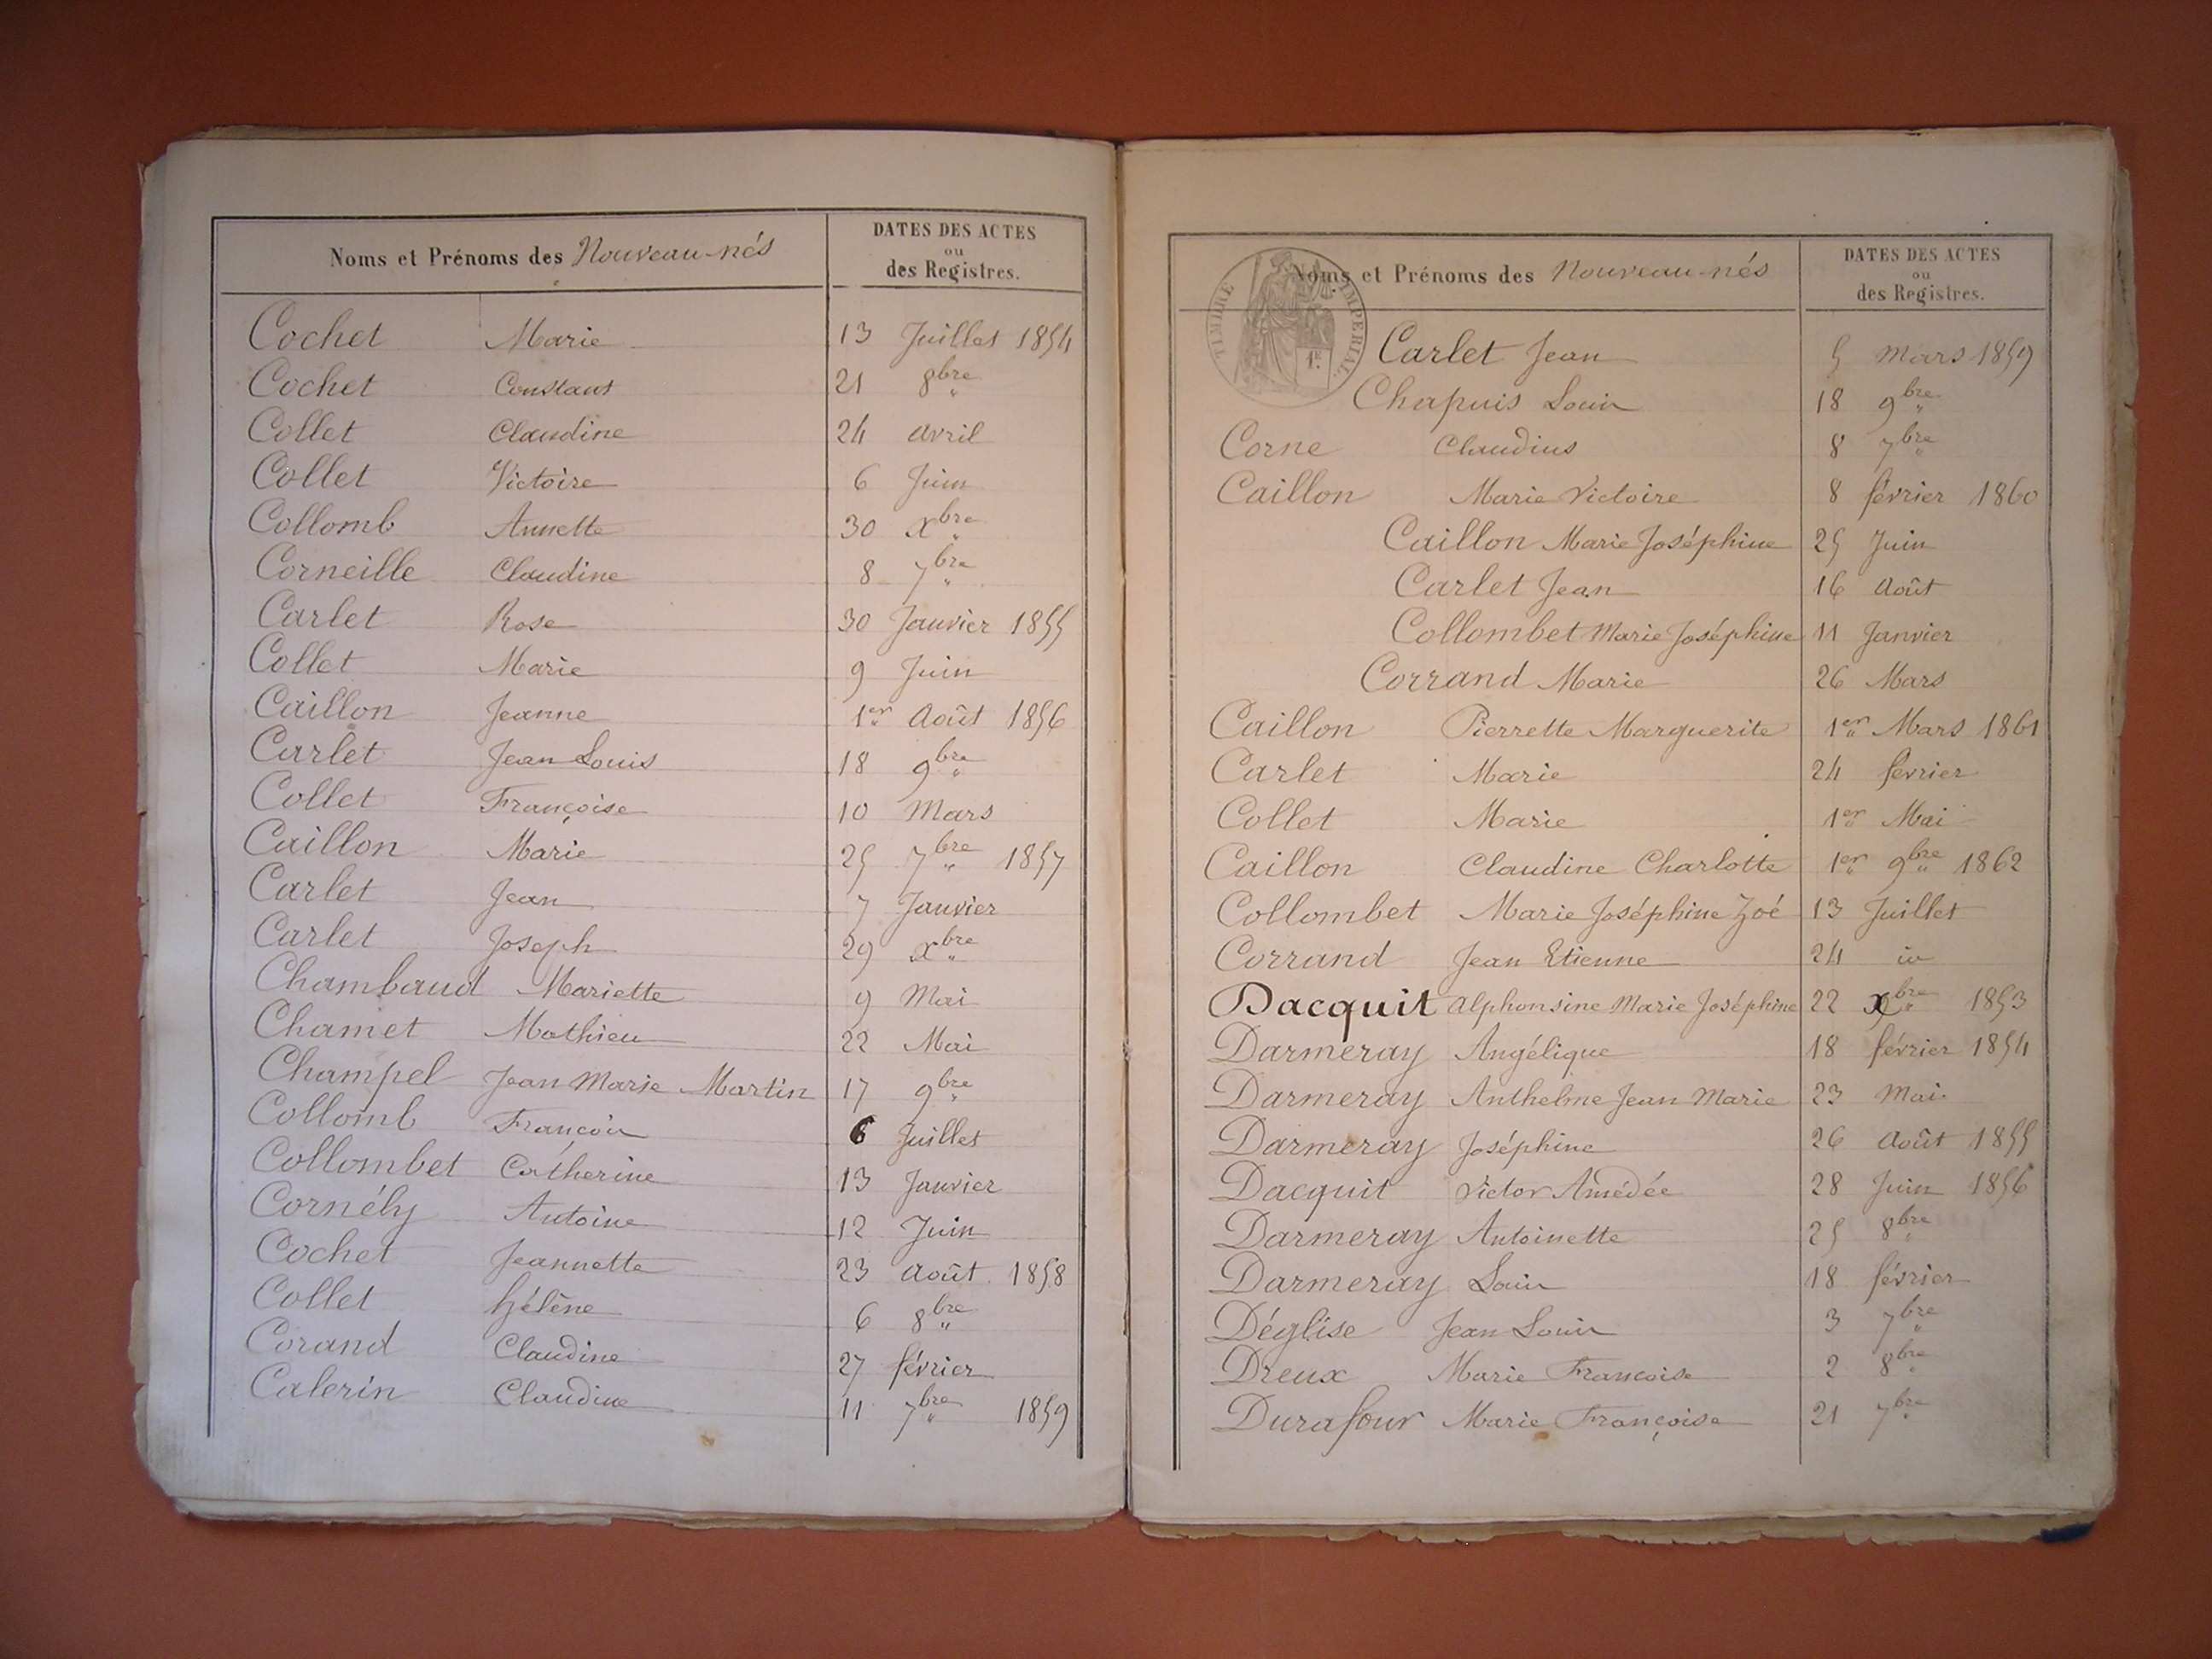 Noms et Prénoms des Nouveau-nés
DATES DES ACTES
ou
des Registres.
Cochet Marie 13 Juillet 1854
Cochet Constant 21 8bre "
Collet Claudine 24 avril
Collet Victoire 6 Juin
Collomb Annette 30 xbre "
Corneille Claudine 8 7bre "
Carlet Rose 30 Janvier 1855
Collet Marie 9 Juin
Caillon Jeanne 1er Août 1856
Carlet Jean Louis 18 9bre "
Collet Françoise 10 Mars
Caillon Marie 25 7bre " 1857
Carlet Jean 7 Janvier
Carlet Joseph 29 xbre "
Chambaud Mariette 9 Mai
Chamet Mathieu 22 Mai
Champel Jean Marie Martin 17 9bre "
Collomb François 6 Juillet
Collombet Catherine 13 Janvier
Cornély Antoine 12 Juin
Cochet Jeannette 23 Août 1858
Collet hélène 6 8bre "
Corand Claudine 27 février
Calerin Claudine 11 7bre " 1859
Noms et Prénoms des Nouveau-nés
DATES DES ACTES
ou
des Registres.
TIMBRE IMPERIAL
1F.
Carlet Jean 5 Mars 1859
Chapuis Louis 18 9bre "
Corne Claudius 8 7bre "
Caillon Marie Victoire 8 février 1860
Caillon Marie Joséphine 25 Juin
Carlet Jean 16 Août
Collombet Marie Joséphine 11 Janvier
Corrand Marie 26 Mars
Caillon Pierrette Marguerite 1er Mars 1861
Carlet Marie 24 fevrier
Collet Marie 1er Mai
Caillon Claudine Charlotte 1er 9bre " 1862
Collombet Marie Joséphine Zoé 13 Juillet
Corrand Jean Etienne 24
Dacquit Alphonsine Marie Joséphine 22 xbre " 1853
Darmeray Angélique 18 février 1854
Darmeray Anthelme Jean Marie 23 Mai
Darmeray Joséphine 26 Août 1855
Dacquit Victor Amédée 28 Juin 1856
Darmeray Antoinette 25 8bre "
Darmeray Louis 18 février
Déglise Jean Louis 3 7bre "
Dreux Marie Francoise 2 8bre "
Durafour Marie Françoise 21 7bre "